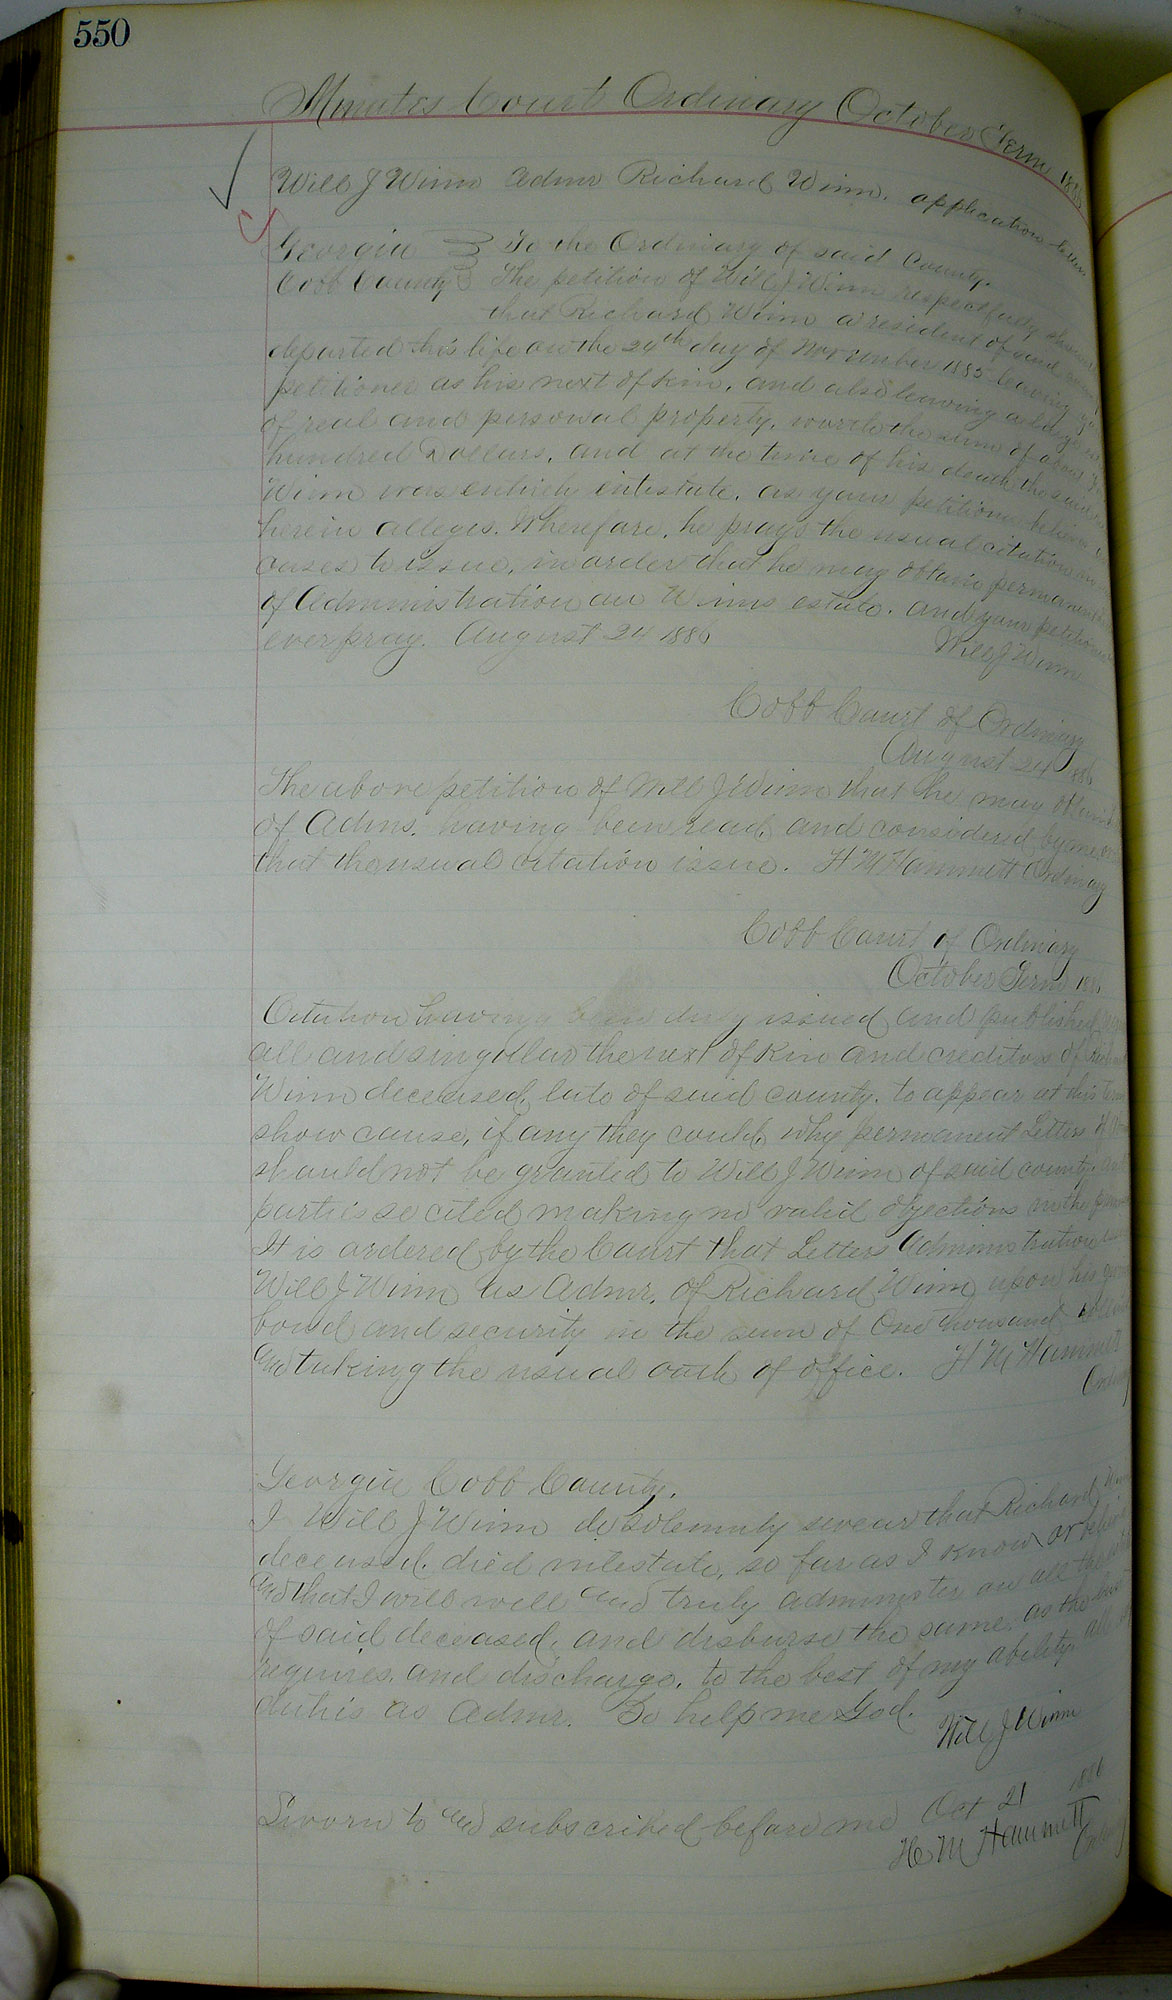 550
Minutes Court Ordinary October Term 188
Will J Winn Admr Richard Winn. application
Georgia } To the Ordinary of said County.
Cobb County } The petition of Will J Winn respectfully
that Richard Winn a resident of said
departed this life on the 24th day of November 1885 leaving
petitioner as his next of kin, and also leaving a
of real and personal property, worth the sum of about
hundred Dollars, and at the time of his death the said
Winn was entirely intestate, as your petitioner believes
herein alleges. Wherefore, he prays the usual citation in
cases to issue, in order that he may obtain permanent
of Administration on Winns estate. and your petitioner
ever pray. August 24 1886
Will J Winn
Cobb Court of Ordinary
August 24 1886
The above petition of Will J Winn that he may obtain
of Admn. having been read, and considered by me,
that the usual citation issue. H M Hammett Ordinary
Cobb Court of Ordinary
October Term 188
Citation having been duly issued and published
all and singular the next of Kin and creditors of
Winn deceased, late of said county, to appear at this term
show cause, if any they could, why permanent Letters
should not be granted to Will J Winn of said county, and
parties so cited making no valid objections in the
It is ordered by the Court that Letters Administration
Will J Winn as Admr. of Richard Winn upon his
bond and security in the sum of One thousand
and taking the usual oath of office. H M Hammett
Georgia Cobb County.
I Will J Winn do solemnly swear that Richard
deceased, died intestate, so far as I know or believe
and that I will well and truly administer on all the
of said deceased, and disburse the same, as the law
requires, and discharge, to the best of my ability, all
duties as Admr. So help me God.
Will J Winn
Sworn to and subscribed before me Oct 21 1886
H M Hammett